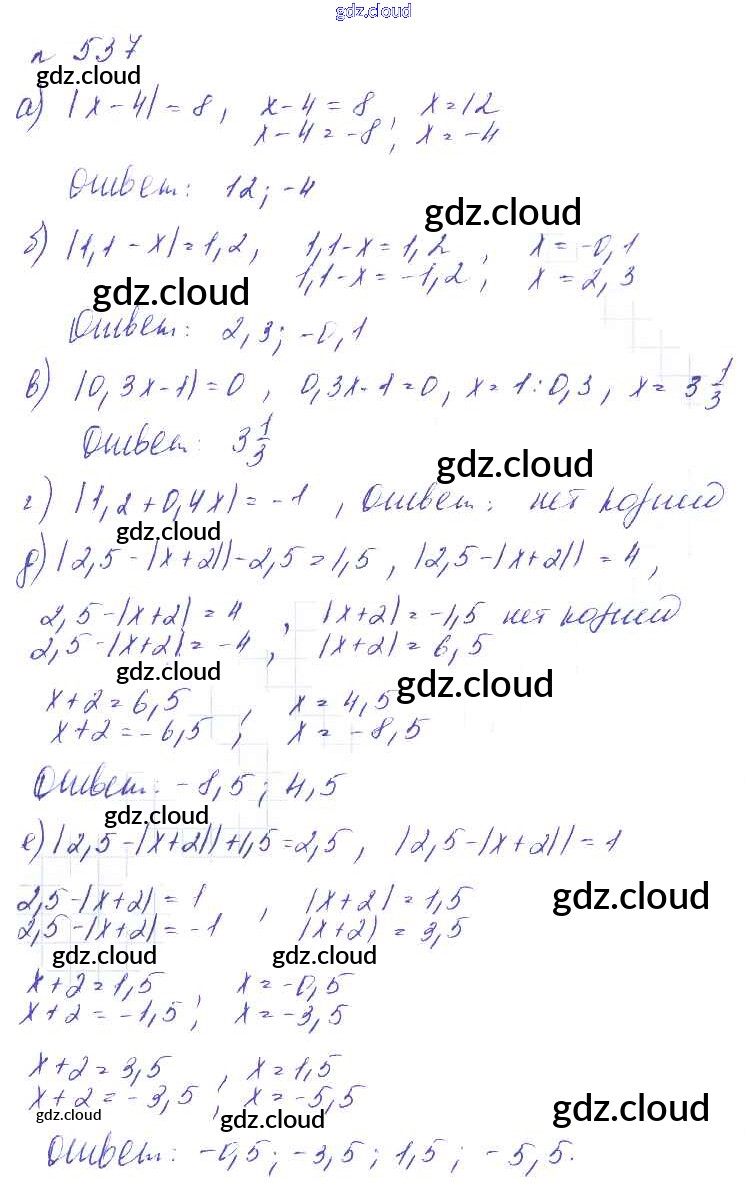 gdz.cloud
n 537
gdz.cloud
а) |x-4|=8, x-4=8, x=12
x-4=-8; x=-4
Ответ: 12; -4
gdz.cloud
б) |1,1-x|=1,2, 1,1-x=1,2, x=-0,1
1,1-x=-1,2; x=2,3
gdz.cloud
Ответ: 2,3; -0,1
в) |0,3x-1|=0, 0,3x-1=0, x=1:0,3, x=3 1/3
Ответ: 3 1/3
gdz.cloud
г) |1,2+0,4x|=-1, Ответ: нет корней
gdz.cloud
д) |2,5-|x+2||-2,5=1,5, |2,5-|x+2||=4,
2,5-|x+2|=4, |x+2|=-1,5 нет корней
2,5-|x+2|=-4, |x+2|=6,5
gdz.cloud
gdz.cloud
x+2=6,5, x=4,5
x+2=-6,5; x=-8,5
Ответ: -8,5; 4,5
gdz.cloud
е) |2,5-|x+2||+1,5=2,5, |2,5-|x+2||=1
2,5-|x+2|=1, |x+2|=1,5
gdz.cloud
2,5-|x+2|=-1 |x+2|=3,5
gdz.cloud gdz.cloud
x+2=1,5, x=-0,5
x+2=-1,5; x=-3,5
x+2=3,5, x=1,5
x+2=-3,5; x=-5,5
gdz.cloud gdz.cloud gdz.cloud
Ответ: -0,5; -3,5; 1,5; -5,5.